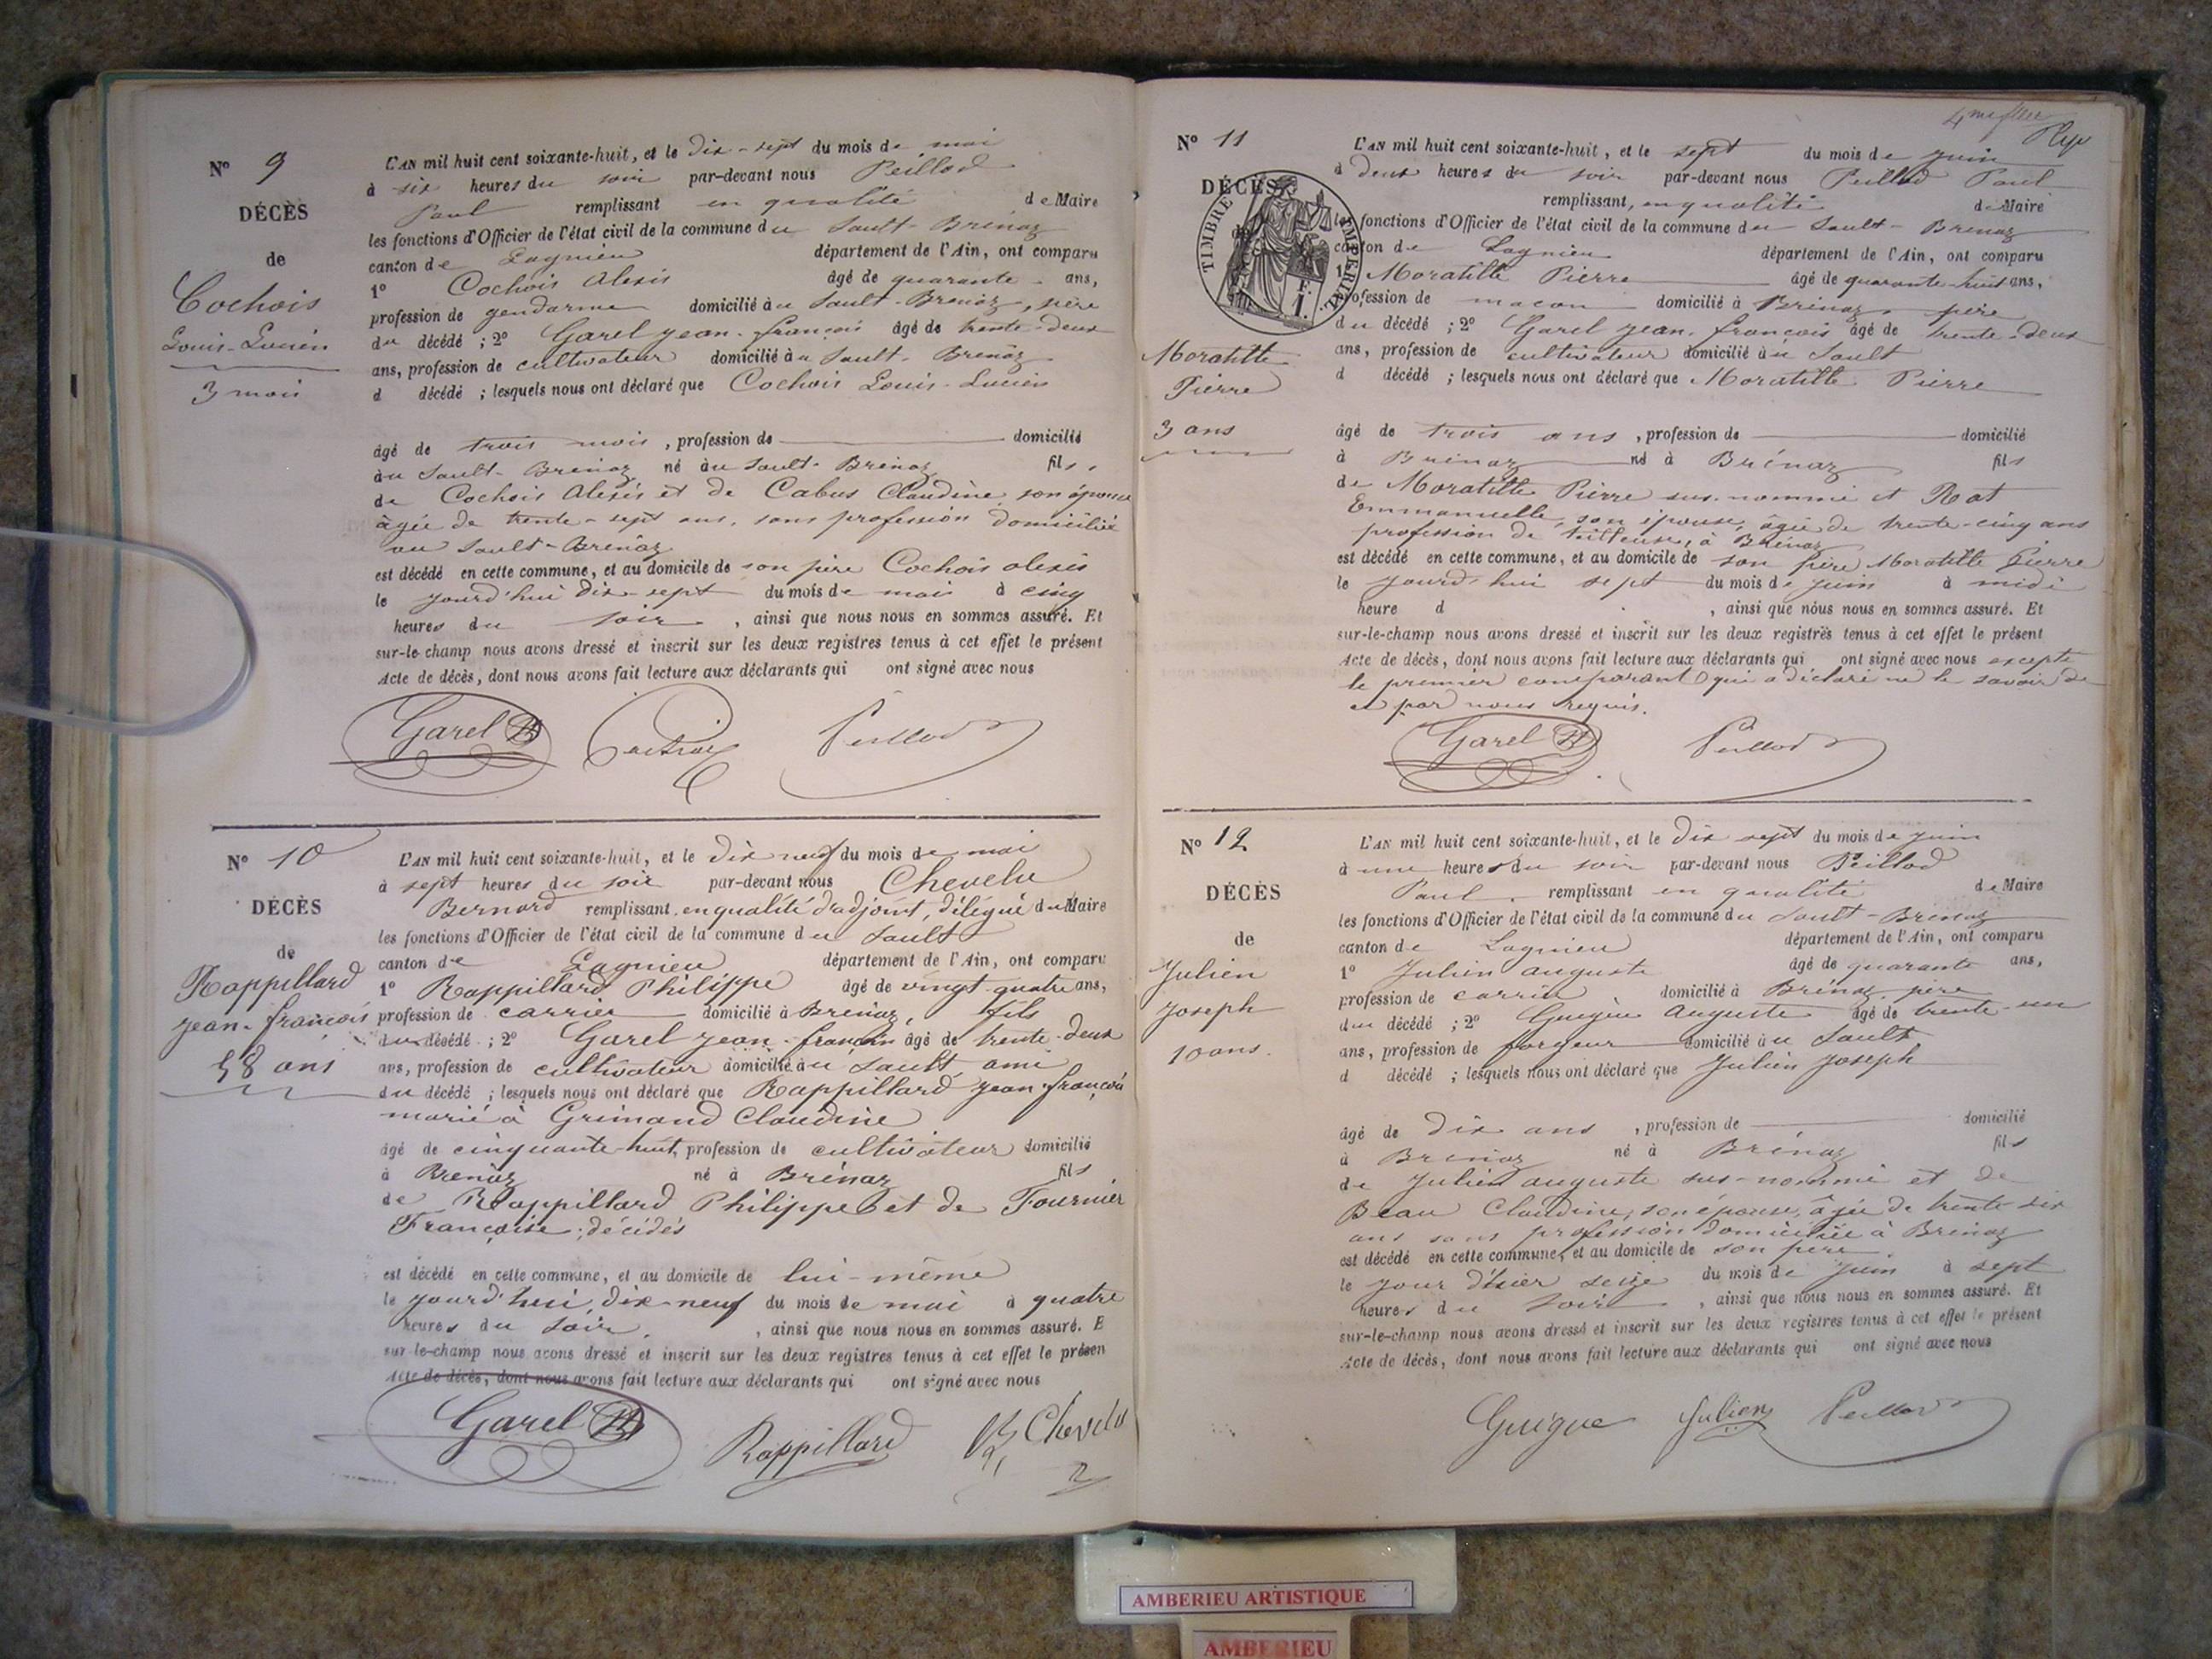 N° 9
DÉCÈS
de
Cochois
Louis-Lucien
3 mois
L'AN mil huit cent soixante-huit, et le dix-sept du mois de mai
à six heures du soir par-devant nous Peillod
Paul remplissant en qualité de Maire
les fonctions d'Officier de l'état civil de la commune du Sault-Brénaz
canton de Lagnieu département de l'Ain, ont comparu
1° Cochois Alexis âgé de quarante ans,
profession de gendarme domicilié au Sault-Brenaz, père
du décédé ; 2° Garel Jean-françois âgé de trente-deux
ans, profession de cultivateur domicilié au Sault-Brenaz
d décédé ; lesquels nous ont déclaré que Cochois Louis-Lucien
âgé de trois mois, profession de domicilié
au Sault-Brenaz né au Sault-Brenaz fils
de Cochois Alexis et de Cabus Claudine son épouse
âgée de trente-sept ans, sans profession domiciliée
au Sault-Brenaz
est décédé en cette commune, et au domicile de son père Cochois alexis
le jourd'hui dix-sept du mois de mai à cinq
heures du soir, ainsi que nous nous en sommes assuré. Et
sur-le-champ nous avons dressé et inscrit sur les deux registres tenus à cet effet le présent
Acte de décès, dont nous avons fait lecture aux déclarants qui ont signé avec nous
Garel Peillod
N° 10
DÉCÈS
de
Rappillard
Jean-françois
58 ans
L'AN mil huit cent soixante-huit, et le dix neuf du mois de mai
à sept heures du soir par-devant nous Chevelu
Bernard remplissant en qualité d'adjoint, délégué du Maire
les fonctions d'Officier de l'état civil de la commune du Sault
canton de Lagnieu département de l'Ain, ont comparu
1° Rappillard Philippe âgé de vingt-quatre ans,
profession de carrier domicilié à Brenaz, fils
du décédé ; 2° Garel Jean-françois âgé de trente-deux
ans, profession de cultivateur domicilié au Sault, ami
du décédé ; lesquels nous ont déclaré que Rappillard Jean-françois
marié à Grimand Claudine
âgé de cinquante-huit, profession de cultivateur domicilié
à Brenaz né à Brénaz fils
de Rappillard Philippe et de Fournier
Françoise, décédés
est décédé en cette commune, et au domicile de lui-même
le jourd'hui, dix-neuf du mois de mai à quatre
heures du soir, ainsi que nous nous en sommes assuré. E
sur-le-champ nous avons dressé et inscrit sur les deux registres tenus à cet effet le présen
Acte de décès, dont nous avons fait lecture aux déclarants qui ont signé avec nous
Garel Rappillard Chevelu
N° 11
DÉCÈS
TIMBRE IMPÉRIAL
Moratille
Pierre
3 ans
L'AN mil huit cent soixante-huit, et le sept du mois de juin
à deux heures du soir par-devant nous Peillod Paul
remplissant, en qualité de Maire
les fonctions d'Officier de l'état civil de la commune du Sault-Brenaz
canton de Lagnieu département de l'Ain, ont comparu
1° Moratille Pierre âgé de quarante-huit ans,
profession de maçon domicilié à Brénaz, père
du décédé ; 2° Garel Jean-françois âgé de trente-deux
ans, profession de cultivateur domicilié au Sault
d décédé ; lesquels nous ont déclaré que Moratille Pierre
âgé de trois ans, profession de domicilié
à Brenaz né à Brénaz fils
de Moratille Pierre sus-nommé et Rat
Emmanuelle, son épouse, âgée de trente-cinq ans
profession de tailleuse, à Brénaz
est décédé en cette commune, et au domicile de son père Moratille Pierre
le jourd'hui sept du mois de juin à midi
heure d , ainsi que nous nous en sommes assuré. Et
sur-le-champ nous avons dressé et inscrit sur les deux registres tenus à cet effet le présent
Acte de décès, dont nous avons fait lecture aux déclarants qui ont signé avec nous excepté
le premier comparant qui a déclaré ne le savoir de
ce par nous requis.
Garel Peillod
N° 12
DÉCÈS
de
Julien
Joseph
10 ans.
L'AN mil huit cent soixante-huit, et le dix sept du mois de juin
à une heures du soir par-devant nous Peillod
Paul remplissant en qualité de Maire
les fonctions d'Officier de l'état civil de la commune du Sault-Brenaz
canton de Lagnieu département de l'Ain, ont comparu
1° Julien auguste âgé de quarante ans,
profession de carrier domicilié à Brénaz, père
du décédé ; 2° Guigue Auguste âgé de trente-un
ans, profession de forgeur domicilié au Sault
d décédé ; lesquels nous ont déclaré que Julien Joseph
âgé de dix ans, profession de domicilié
à Brenaz né à Brénaz fils
de Julien auguste sus-nommé et de
Beau Claudine, son épouse, âgée de trente-six
ans sans profession domiciliée à Brenaz
est décédé en cette commune, et au domicile de son père
le jour d'hier seize du mois de juin à sept
heures du soir, ainsi que nous nous en sommes assuré. Et
sur-le-champ nous avons dressé et inscrit sur les deux registres tenus à cet effet le présent
Acte de décès, dont nous avons fait lecture aux déclarants qui ont signé avec nous
Guigue Julien Peillod
AMBERIEU ARTISTIQUE
AMBERIEU